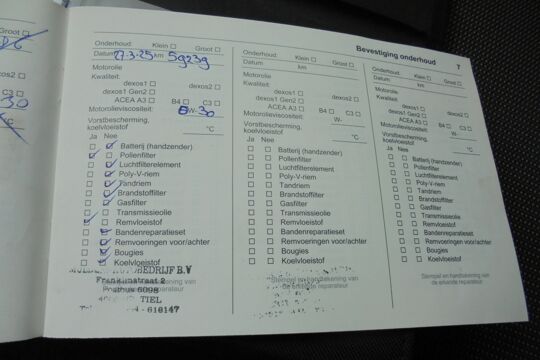 Groot
Bevestiging onderhoud 7
Onderhoud: Klein Groot
Datum 27-3-25 km 59239
Motorolie
Kwaliteit:
dexos1 dexos2
dexos1 Gen2
ACEA A3 B4 C3
Motorolieviscositeit: W- 30
Vorstbescherming,
koelvloeistof °C
Ja Nee
Batterij (handzender)
Pollenfilter
Luchtfilterelement
Poly-V-riem
Tandriem
Brandstoffilter
Gasfilter
Transmissieolie
Remvloeistof
Bandenreparatieset
Remvoeringen voor/achter
Bougies
Koelvloeistof
BEDRIJF B.V
Franklinstraat 2
Postbus 6098
TIEL
- 610147
Onderhoud: Klein Groot
Datum km
Motorolie
Kwaliteit:
dexos1 dexos2
dexos1 Gen2
ACEA A3 B4 C3
Motorolieviscositeit: W-
Vorstbescherming,
koelvloeistof °C
Ja Nee
Batterij (handzender)
Pollenfilter
Luchtfilterelement
Poly-V-riem
Tandriem
Brandstoffilter
Gasfilter
Transmissieolie
Remvloeistof
Bandenreparatieset
Remvoeringen voor/achter
Bougies
Koelvloeistof
Stempel en handtekening van
de erkende reparateur
Onderhoud: Klein Groot
Datum km
Motorolie
Kwaliteit:
dexos1 dexos2
dexos1 Gen2
ACEA A3 B4 C3
Motorolieviscositeit: W-
Vorstbescherming,
koelvloeistof °C
Ja Nee
Batterij (handzender)
Pollenfilter
Luchtfilterelement
Poly-V-riem
Tandriem
Brandstoffilter
Gasfilter
Transmissieolie
Remvloeistof
Bandenreparatieset
Remvoeringen voor/achter
Bougies
Koelvloeistof
Stempel en handtekening van
de erkende reparateur